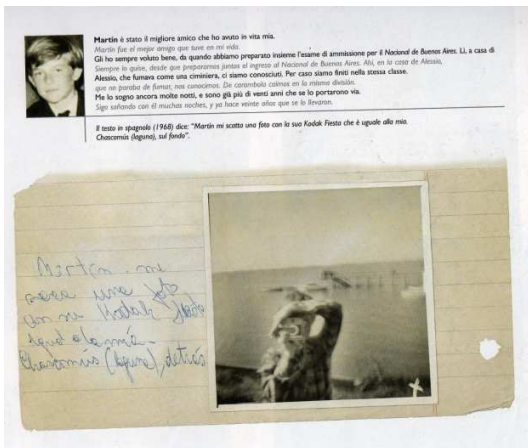 Martín è stato il migliore amico che ho avuto in vita mia.
Martín fue el mejor amigo que tuve en mi vida.
Gli ho sempre voluto bene, da quando abbiamo preparato insieme l'esame di ammissione per il Nacional de Buenos Aires. Lì, a casa di
Siempre lo quise, desde que preparamos juntos el ingreso al Nacional de Buenos Aires. Ahí, en la casa de Alessio,
Alessio, che fumava come una ciminiera, ci siamo conosciuti. Per caso siamo finiti nella stessa classe.
que no paraba de fumar, nos conocimos. De carambola caímos en la misma división.
Me lo sogno ancora molte notti, e sono già più di venti anni che se lo portarono via.
Sigo soñando con él muchas noches, y ya hace veinte años que se lo llevaron.
Il testo in spagnolo (1968) dice: "Martín mi scatta una foto con la sua Kodak Fiesta che è uguale alla mia.
Chascomús (laguna), sul fondo".
Martín me
saca una foto
con su Kodak Fiesta
igual a la mía-
Chascomús (laguna), detrás